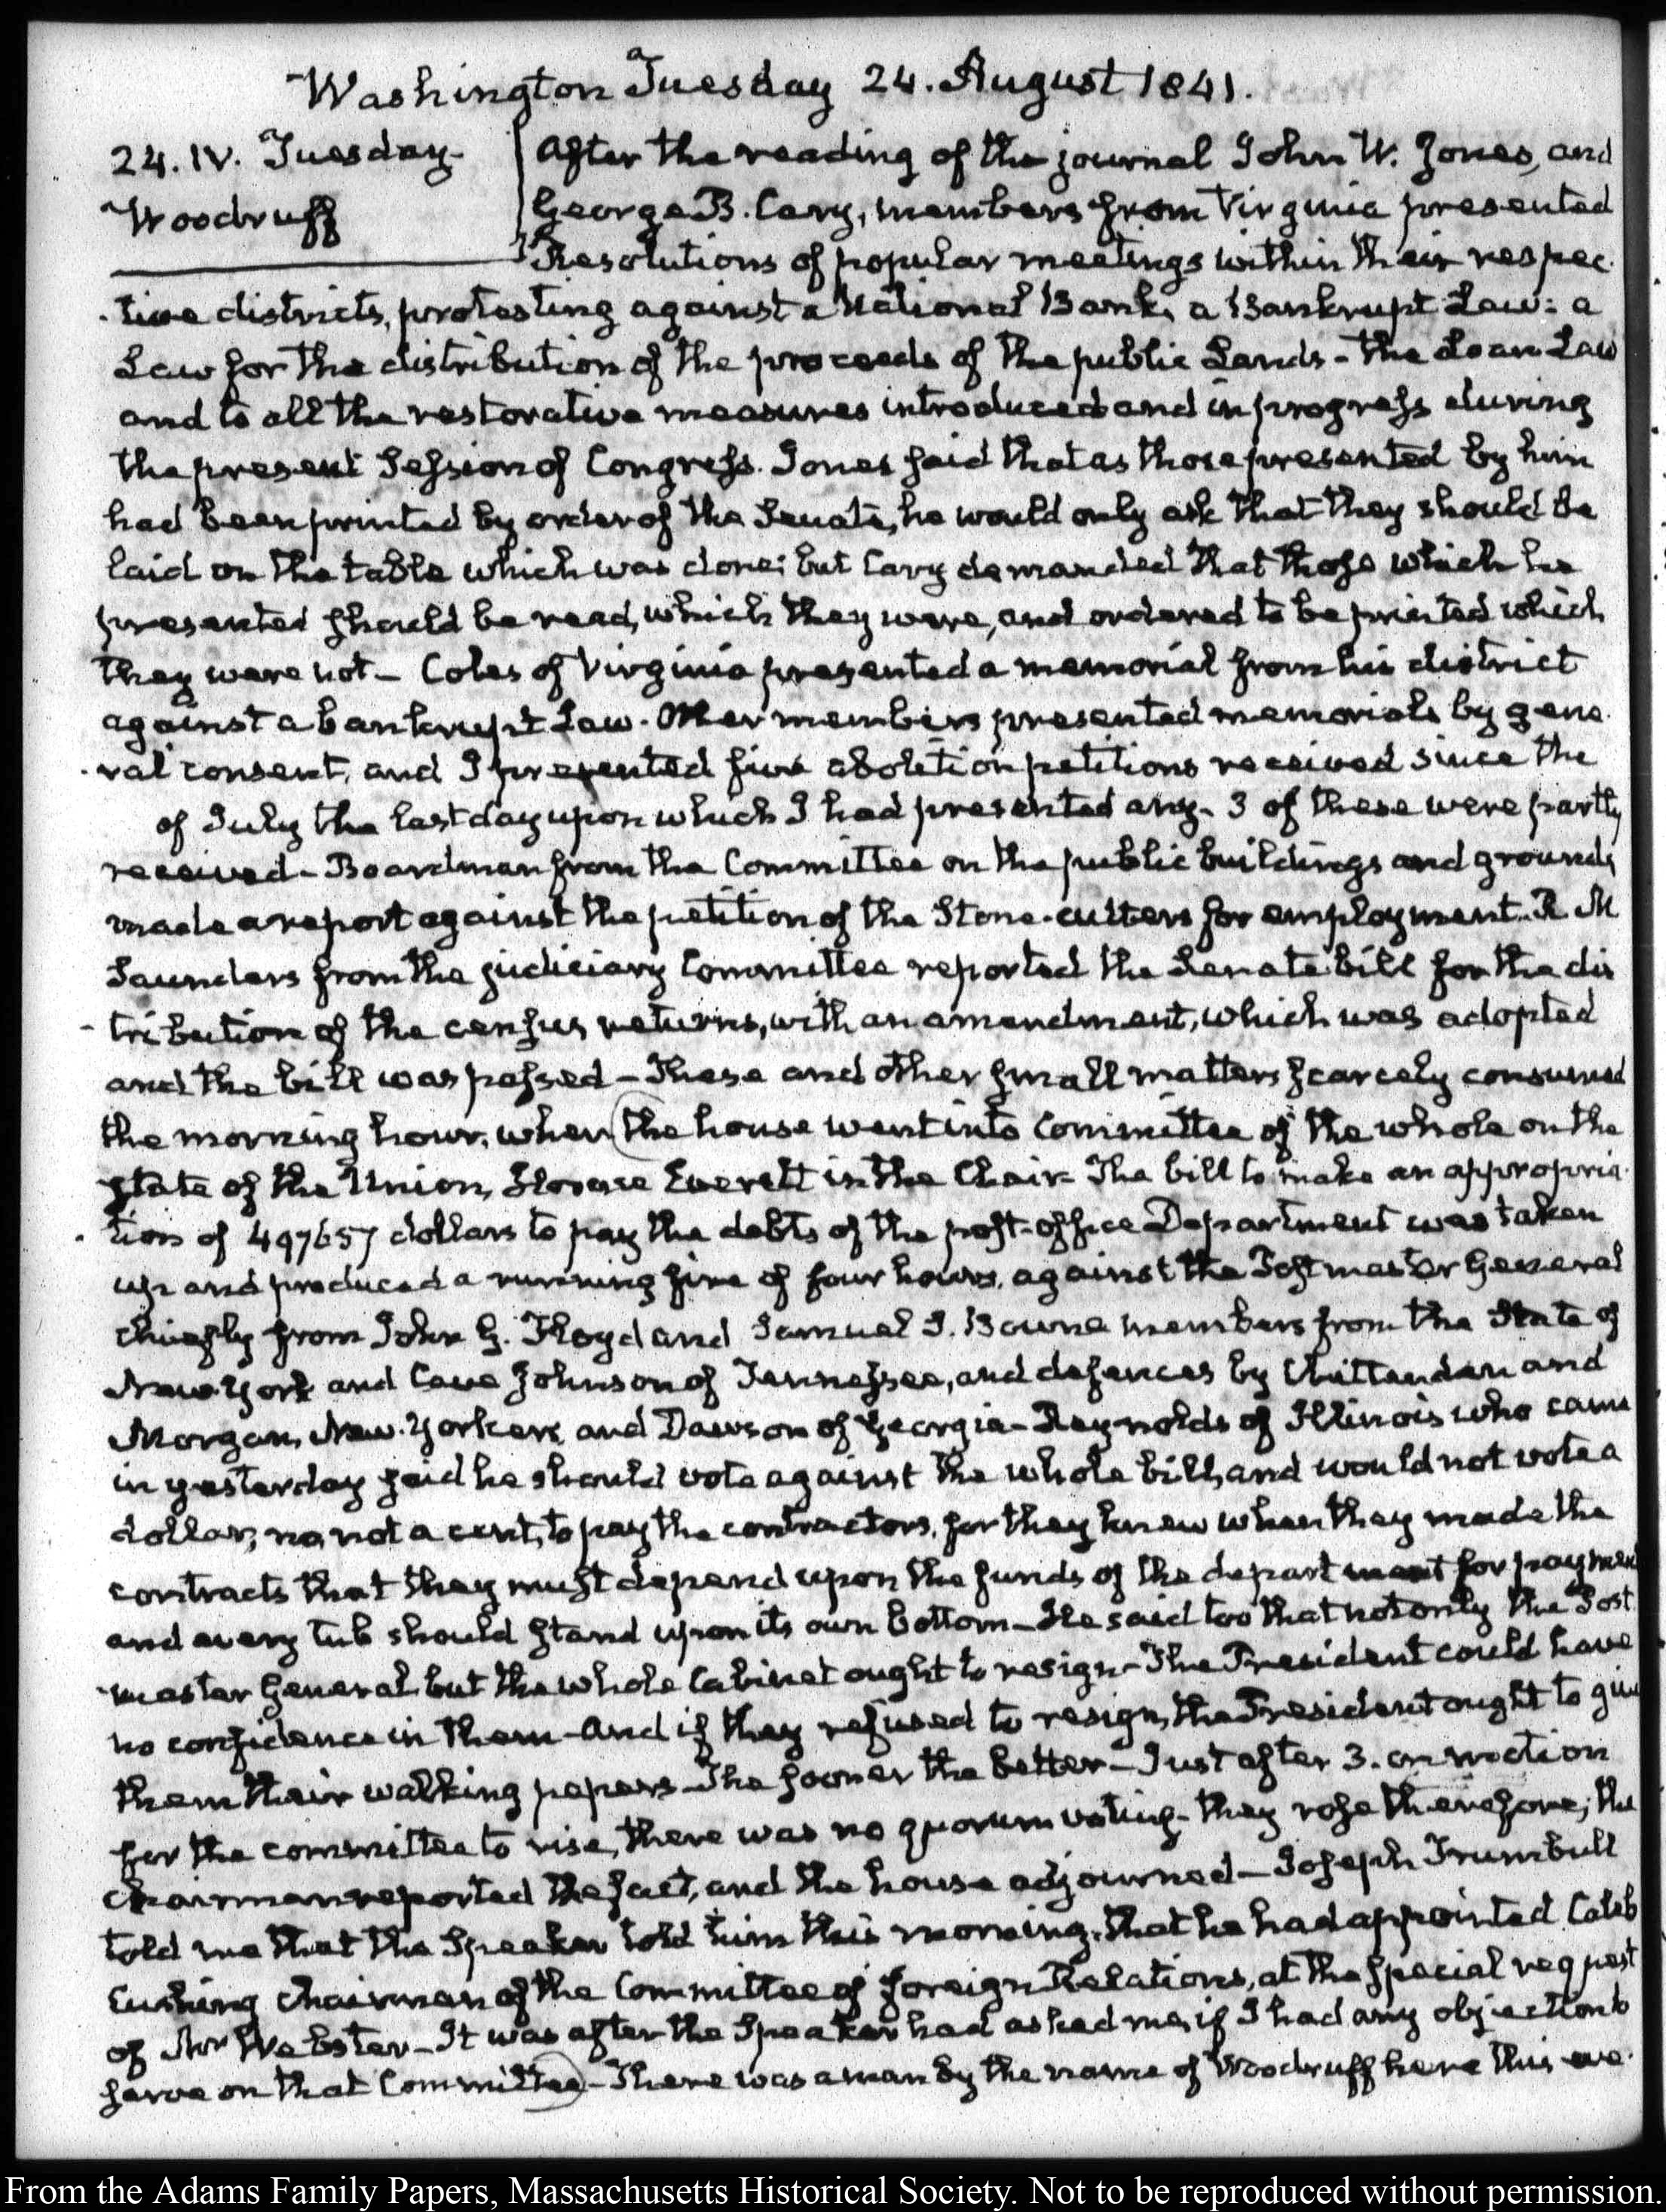 Washington Tuesday 24. August 1841.
24. IV. Tuesday.
Woodruff
After the reading of the journal John W. Jones, and
George B. Cary, members from Virginia presented
Resolutions of popular meetings within their respec-
-tive districts, protesting against a National Bank, a Bankrupt Law: a
Law for the distribution of the proceeds of the public Lands - the Loan Law
and to all the restorative measures introduced and in progress during
the present Session of Congress. Jones said that as those presented by him
had been printed by order of the Senate, he would only ask that they should be
laid on the table which was done; but Cary demanded that those which he
presented should be read, which they were, and ordered to be printed which
they were not - Coles of Virginia presented a memorial from his district
against a bankrupt Law. Other members presented memorials by gene-
-ral consent, and I presented five abolition petitions received since the
of July the last day upon which I had presented any - 3 of these were partly
received - Boardman from the Committee on the public buildings and grounds
made a report against the petition of the Stone-cutters for employment. R. M
Saunders from the judiciary Committee reported the Senate bill for the dis
-tribution of the census returns, with an amendment, which was adopted
and the bill was passed - These and other small matters scarcely consumed
the morning hour, when (the house went into Committee of the whole on the
state of the Union, Horace Everett in the Chair - The bill to make an appropria-
-tion of 497657 dollars to pay the debts of the post-office Department was taken
up and produced a running fire of four hours, against the Postmaster General
chiefly from John G. Floyd and Samuel S. Bowne members from the State of
New-York and Cave Johnson of Tennessee, and defences by Chittenden and
Morgan, New-Yorkers, and Dawson of Georgia - Reynolds of Illinois who came
in yesterday said he should vote against the whole bill, and would not vote a
dollar, no not a cent, to pay the contractors, for they knew when they made the
contracts that they must depend upon the funds of the department for payment
and every tub should stand upon its own bottom - He said too that not only the Post
-master General but the whole Cabinet ought to resign - The President could have
no confidence in them - And if they refused to resign, the President ought to give
them their walking papers - The sooner the better - Just after 3. on motion
for the committee to rise, there was no quorum voting - they rose therefore; the
chairman reported the fact, and the house adjourned - Joseph Trumbull
told me that the Speaker told him this morning, that he had appointed Caleb
Cushing chairman of the Committee of foreign Relations, at the special request
of Mr Webster - It was after the Speaker had asked me, if I had any objection to
serve on that Committee) - There was a man by the name of Woodruff here this eve-
From the Adams Family Papers, Massachusetts Historical Society. Not to be reproduced without permission.